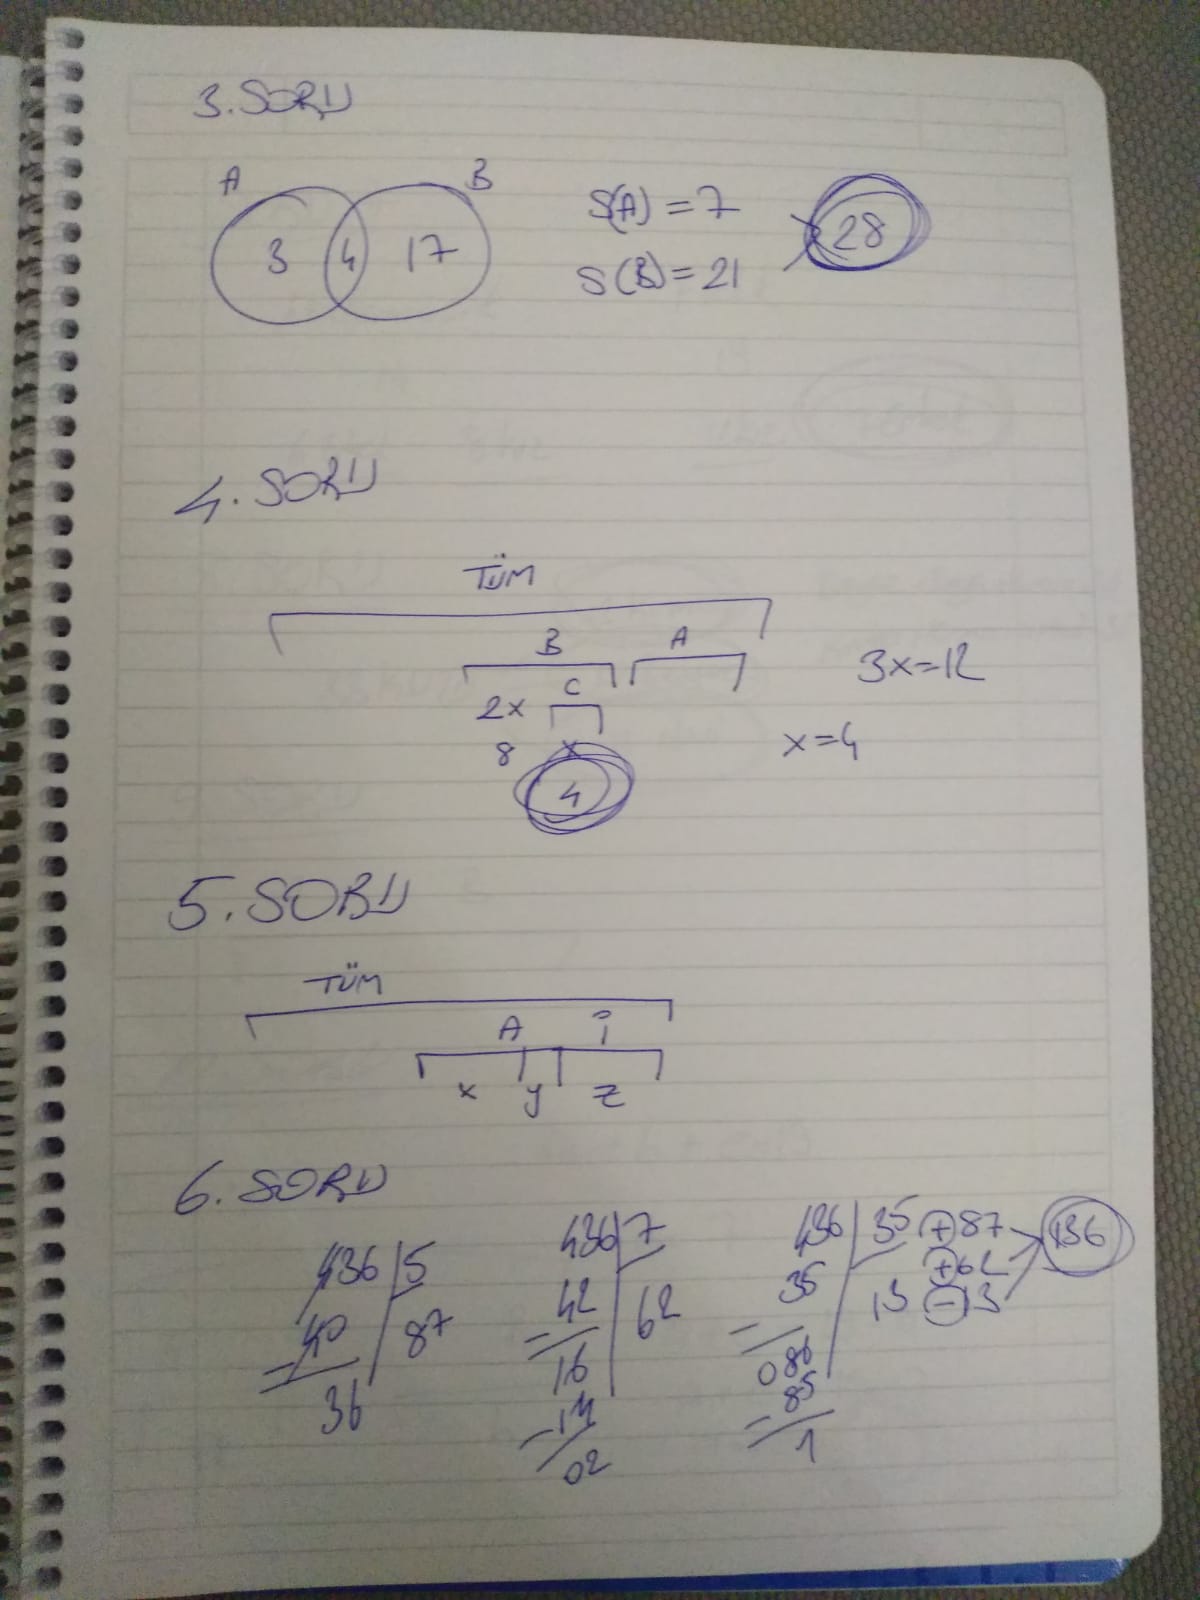 3. SORU
A B
3 4 17
S(A) = 7
S(B) = 21
28
4. SORU
TÜM
B A
C
2x
8 x
4
3x=12
x=4
5. SORU
TÜM
A İ
x y z
6. SORU
436 5
40 87
36
436 7
42 62
16
-14
02
436 35 + 87
35 13 + 62
- 13
136
086
85
1